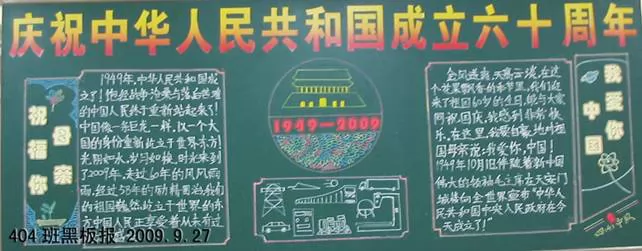 庆祝中华人民共和国成立六十周年
祝福你
母亲
1949年,中华人民共和国成
立了!饱经战争沧桑与落后苦难
的中国人民终于重新站起来了!
中国像一条巨龙一样,以一个大
国的身份重新屹立于世界东方!
光阴如水,岁月如梭,时光来到
了2009年,走过60年的风风雨
雨,经过
年的励精图治,我们
的祖国巍然屹立于世界的东
方,中国人民正享受着从未有过
1949—2009
金风送爽,天高云淡,在这
个花果飘香的季节里,我们迎
来了祖国60岁的生日,能与大家
同祝国庆,我感到非常快
乐,在这里,我要自豪地对祖
国母亲说:我爱你,中国!
1949年10月1日伴随着新中国
伟大的领袖毛主席在天安门
城楼向全世界宣布“中华人
民共和国中央人民政府在今
天成立了!”
我爱你
中国
404 班黑板报 2009.9.27